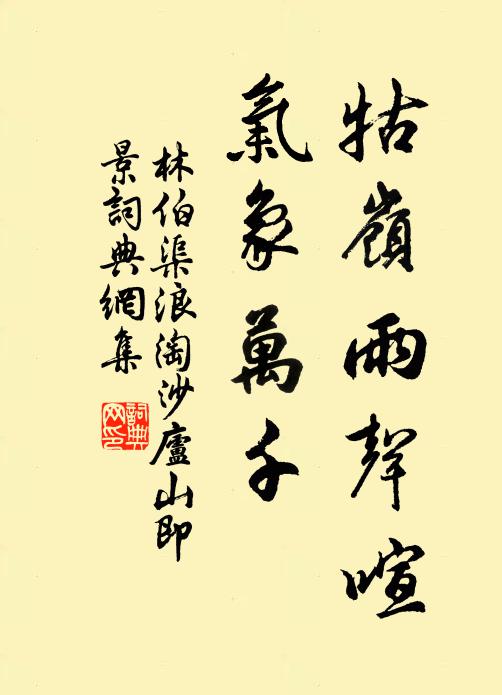 牯嶺雨聲喧
氣象萬千
林伯渠浪淘沙廬山即
景詞典網集
詞典
网印